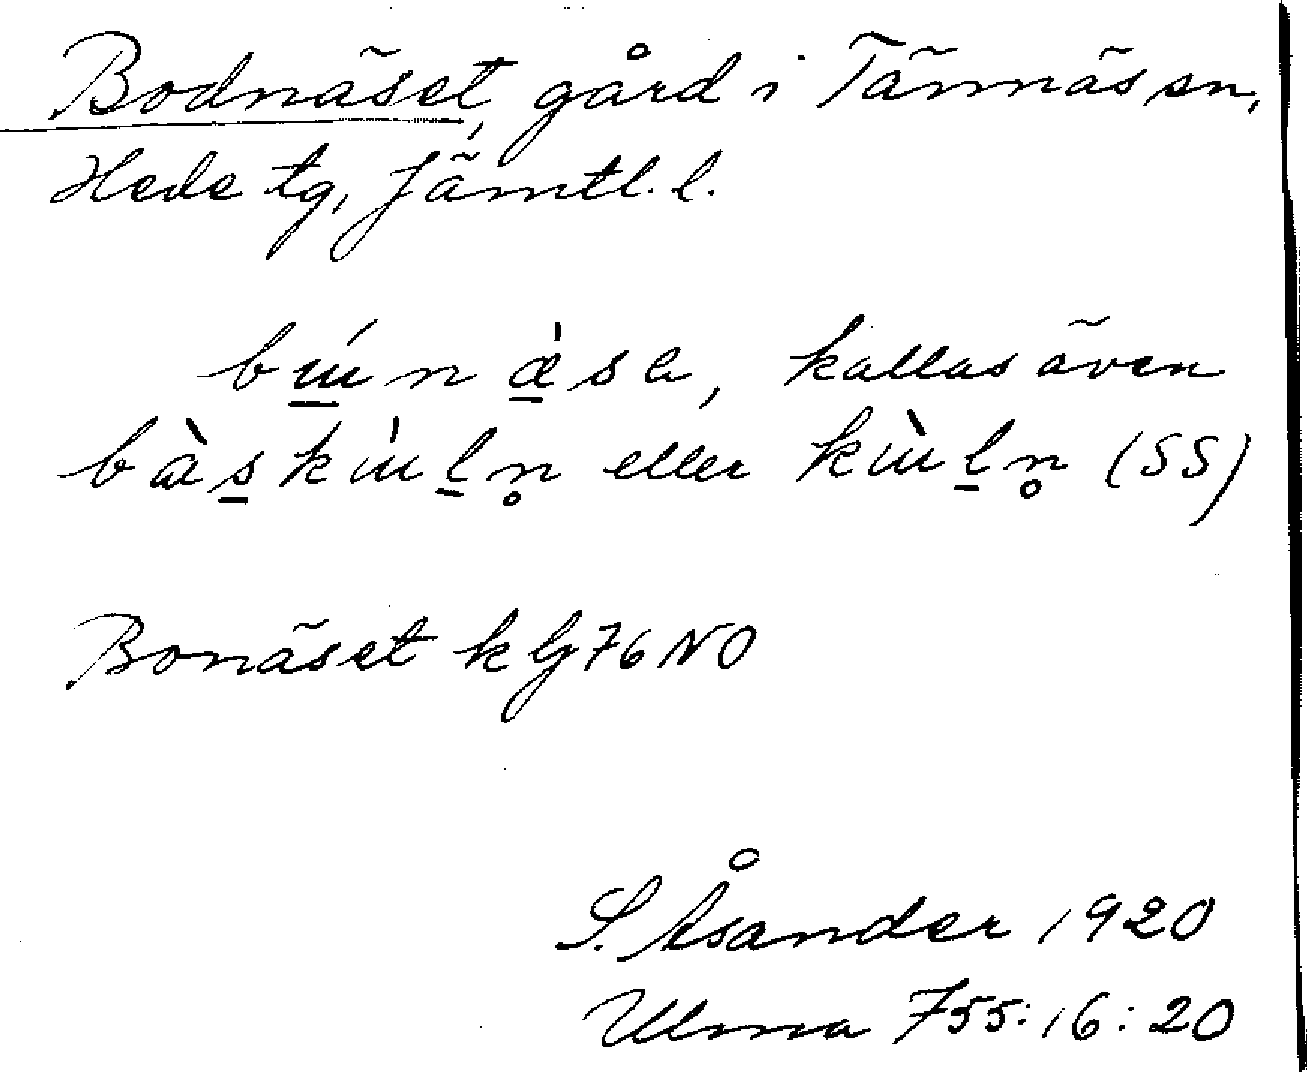 Bodnäset, gård i Tännäs sn,
Hede tg, Jämtl. l.
kallas även
eller (SS)
Bonäset k G 76 NO
S. Åsander 1920
Ulma 755:16:20